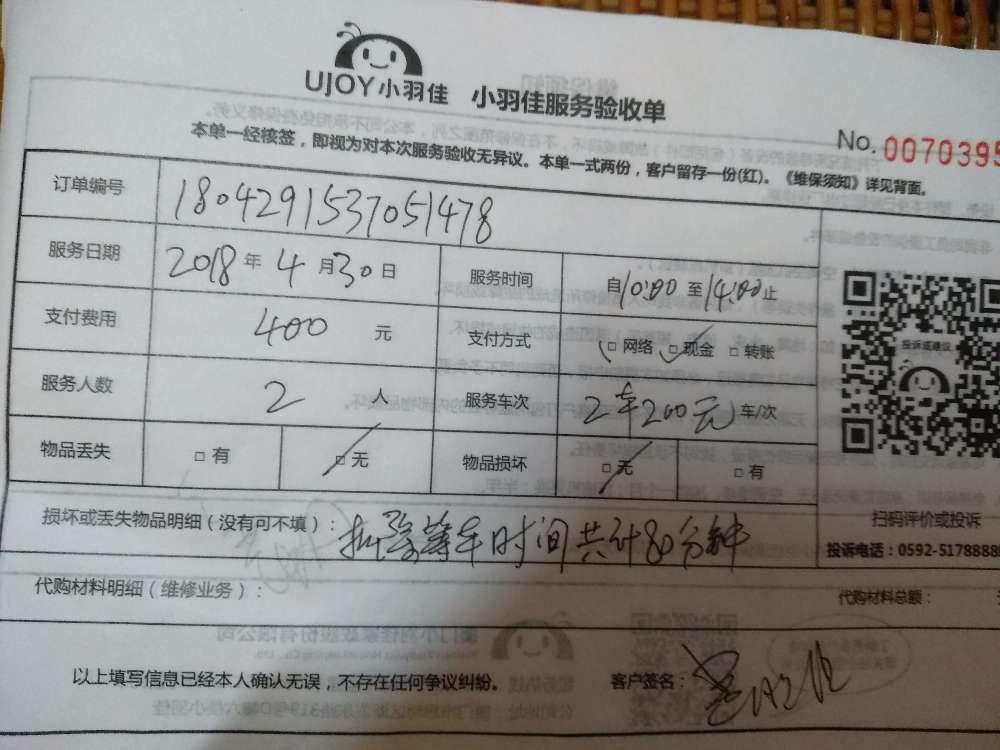 UJOY小羽佳 小羽佳服务验收单
No. 0070395
本单一经核签，即视为对本次服务验收无异议。本单一式两份，客户留存一份(红)。《维保须知》详见背面。
订单编号 1804291537051478
服务日期 2018年4月30日 服务时间 自10:00至14:00止
支付费用 400元 支付方式 □网络 □现金 □转账
服务人数 2人 服务车次 2车200元 车/次
物品丢失 □有 □无 物品损坏 □无 □有
投诉或建议
扫码评价或投诉
投诉电话：0592-5178888
损坏或丢失物品明细（没有可不填）：扣除等车时间共计80分钟
代购材料明细（维修业务）： 代购材料总额：
以上填写信息已经本人确认无误，不存在任何争议纠纷。 客户签名：